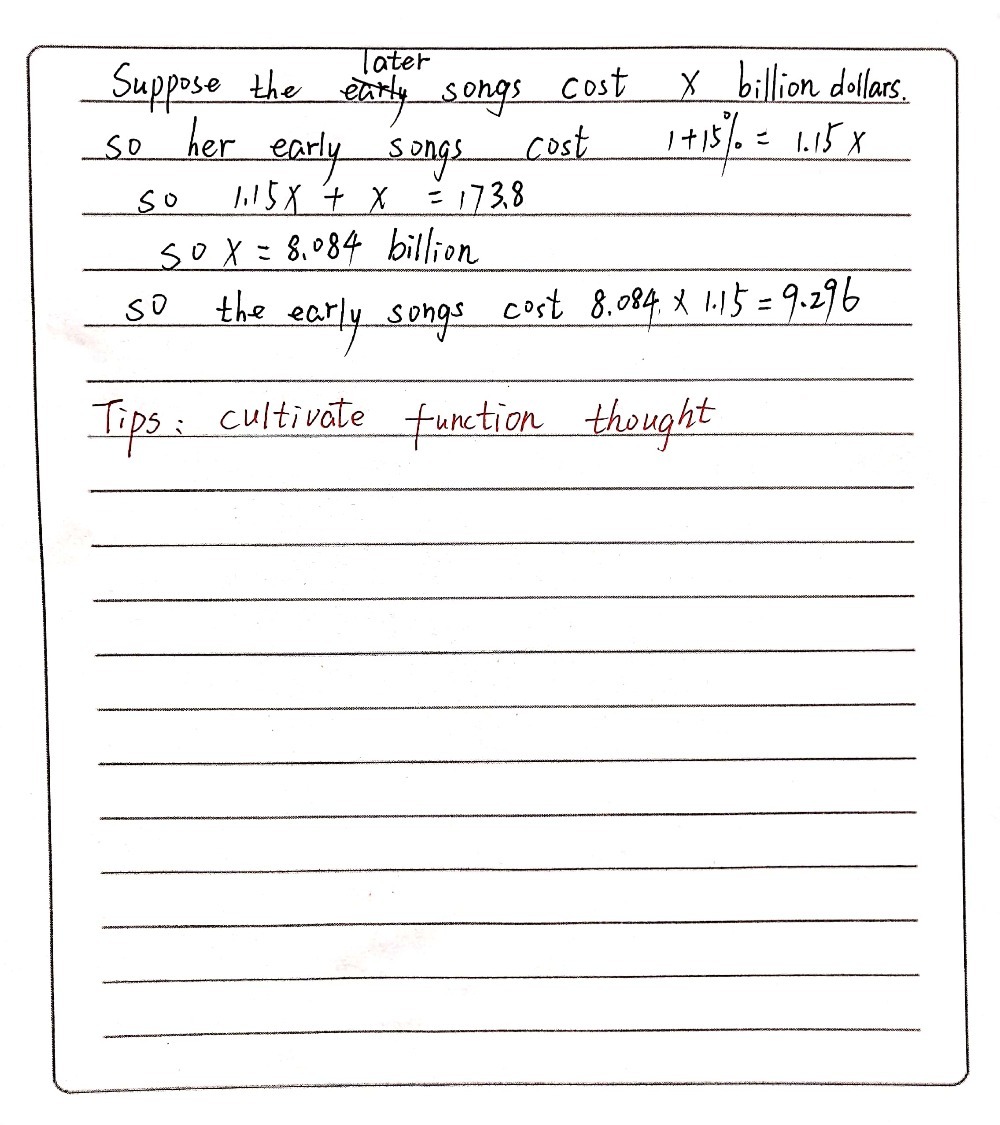 Suppose the later songs cost x billion dollars.
so her early songs cost 1+15% = 1.15 x
so 1.15x + x = 173.8
so x = 8.084 billion
so the early songs cost 8.084 x 1.15 = 9.296
Tips: cultivate function thought